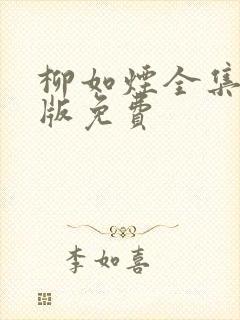 柳如煙全集
版免費
李如喜